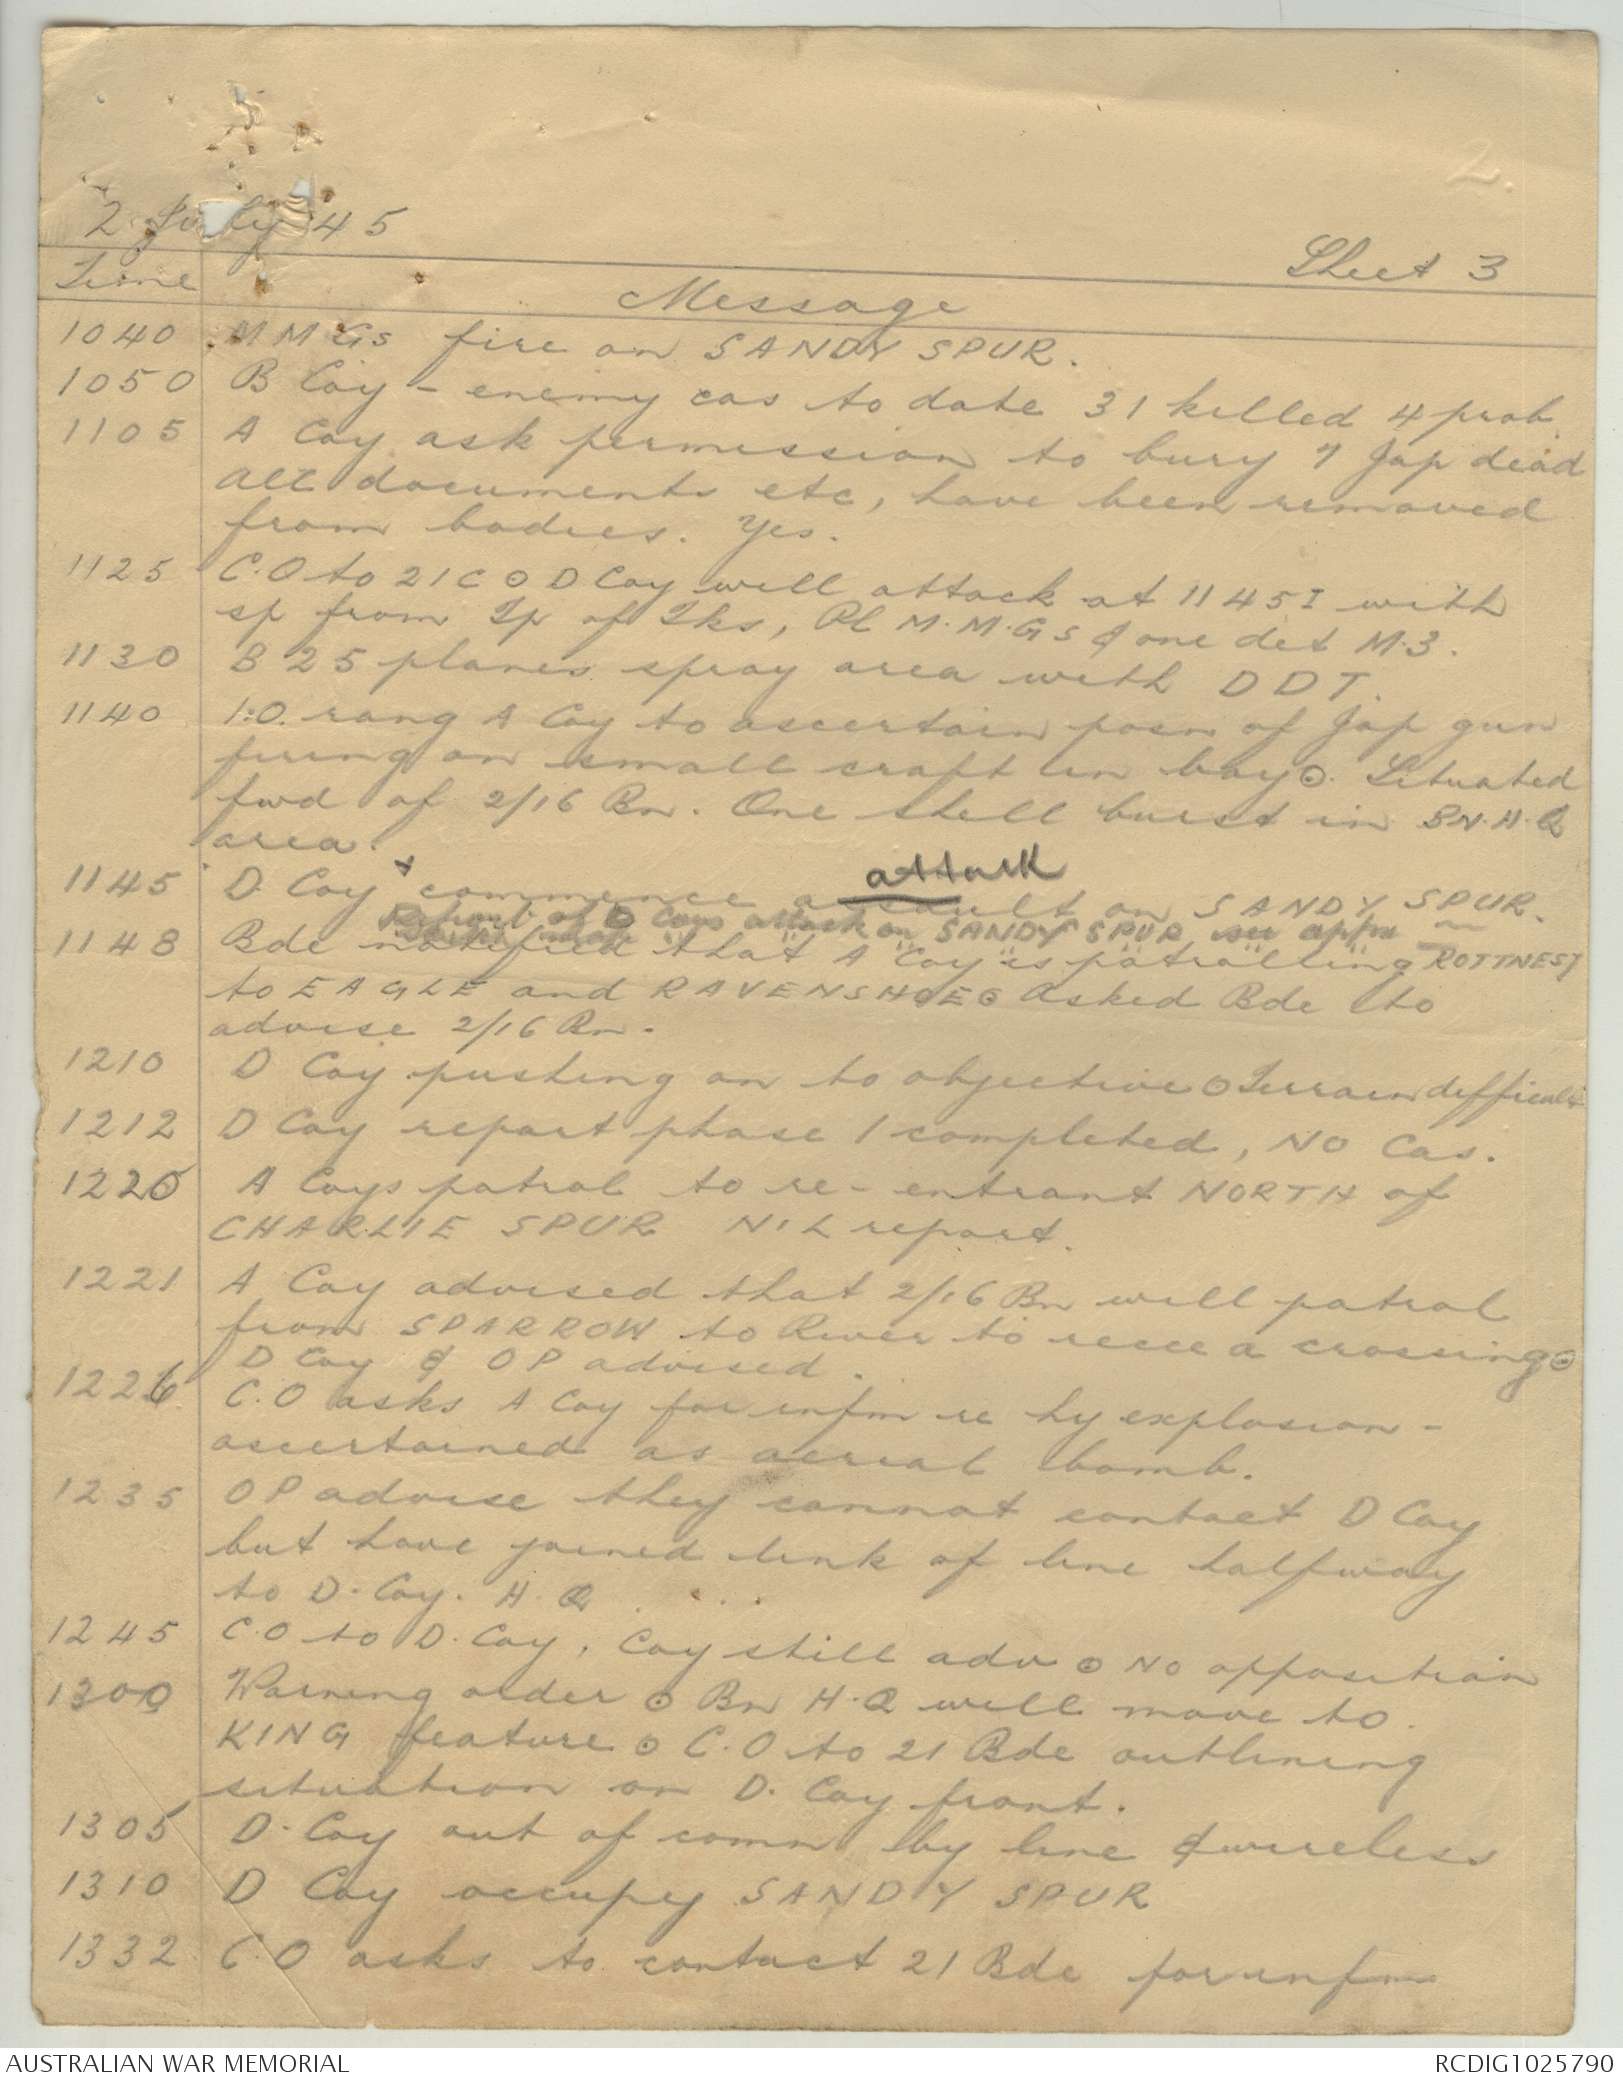 2.
2 July 45
Sheet 3
Time
Message
1040 M M Gs fire on SANDY SPUR.
1050 B Coy - enemy cas to date 31 killed 4 prob.
1105 A Coy ask permission to bury 7 Jap dead
All documents etc, have been removed
from bodies. Yes.
1125 C.O to 2 I C ⊙ D Coy will attack at 1145I with
sp from Tp of Tks, Pl M.M.Gs & one det M.3.
1130 B 25 planes spray area with DDT.
1140 I.O. rang A Coy to ascertain posn of Jap gun
firing on small craft in bay ⊙. Situated
fwd of 2/16 Bn. One shell burst in BN.H.Q
area.
attack
1145 D Coy + commence assault on SANDY SPUR.
Report of D Coys attack on SANDY SPUR see appx
1148 Bde notified that A Coy is patrolling ROTTNEST
to EAGLE and RAVENSHOE ⊙ Asked Bde to
advise 2/16 Bn.
1210 D Coy pushing on to objective ⊙ Terrain difficult
1212 D Coy report phase 1 completed, NO Cas.
1220 A Coys patrol to re-entrant NORTH of
CHARLIE SPUR NIL report.
1221 A Coy advised that 2/16 Bn will patrol
from SPARROW to River to recce a crossing ⊙
D Coy & OP advised.
1226 C.O asks A Coy for infm re hy explosion -
ascertained as aerial bomb.
1235 OP advise they cannot contact D Coy
but have joined link of line halfway
to D. Coy. H.Q
1245 C.O to D. Coy, Coy still adv ⊙ No opposition
1300 Warning order ⊙ Bn H.Q will move to
KING feature ⊙ C.O to 21 Bde outlining
situation on D. Coy front.
1305 D. Coy out of comn by line & wireless
1310 D Coy occupy SANDY SPUR
1332 C.O asks to contact 21 Bde for infm
AUSTRALIAN WAR MEMORIAL
RCDIG1025790